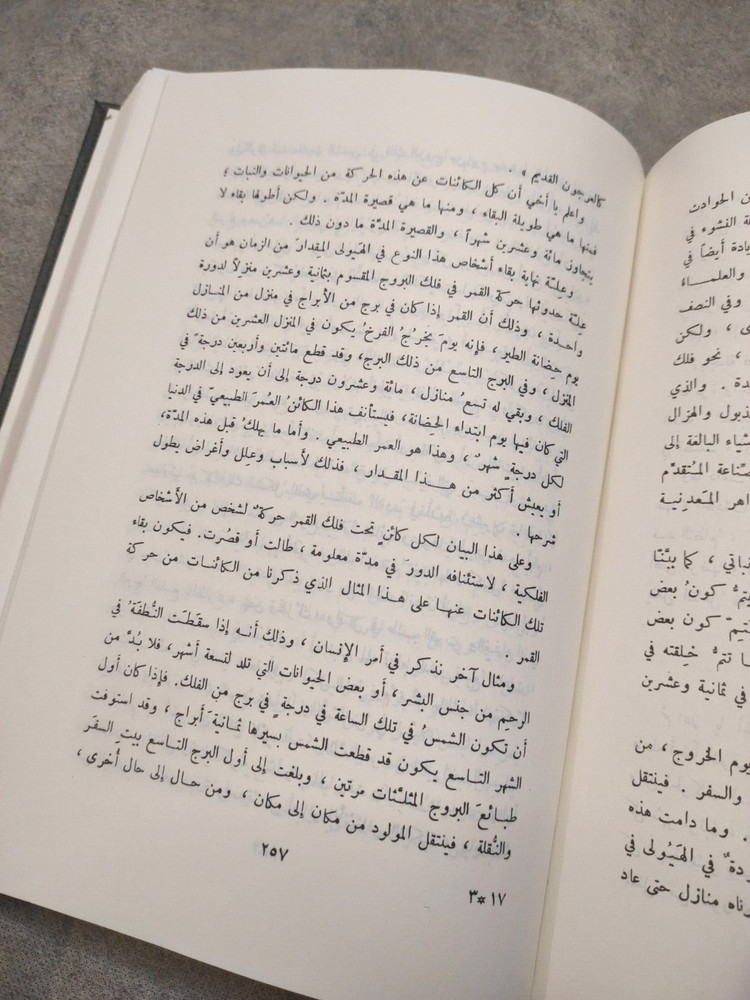 كالعرجون القديم » .
واعلم يا أخي أن كل الكائنات عن هذه الحركة من الحيوانات والنبات ؛
فمنها ما هي طويلة البقاء ، ومنها ما هي قصيرة المدّة . ولكن أطولها بقاء لا
يتجاوز مائة وعشرين شهراً ، والقصيرة المدّة ما دون ذلك .
وعِلّة نهاية بقاء أشخاص هذا النوع في الهَيولى المِقدارَ من الزمان هو أن
عِلّة حدوثها حركة القمر في فلك البروج المقسوم بثمانية وعشرين منزلاً لدورة
واحدة ، وذلك أن القمر إذا كان في برج من الأبراج في منزل من المنازل
يوم حِضانة الطير ، فإنه يومَ يخرُجُ الفرخُ يكون في المنزل العشرين من ذلك
المنزل ، وفي البرج التاسع من ذلك البرج، وقد قطع مائتين وأربعين درجةً في
الفلك ، وبقي له تسعُ منازل ، مائة وعشرون درجة إلى أن يعود إلى الدرجة
التي كان فيها يوم ابتداء الحِضانة، فيستأنف هذا الكائنُ العُمرَ الطبيعيّ في الدنيا
لكل درجةٍ شهرٌ ، وهذا هو العمر الطبيعي . وأما ما يهلكُ قبل هذه المدّة،
أو يعيش أكثر من هـذا المقدار ، فذلك لأسباب وعلل وأغراض يطول
شرحها .
وعلى هذا البيان لكل كائنٍ تحت فلك القمر حركةٌ لشخص من الأشخاص
الفلكية ، لاستئنافه الدورَ في مدّة معلومة ، طالت أو قصُرت. فيكون بقاء
تلك الكائنات عنها على هذا المثال الذي ذكرنا من الكائنات من حركة
القمر .
ومثال آخر نذكر في أمر الإنسان ، وذلك أنه إذا سقَطَت النُّطفَةُ في
الرحِم من جنس البشر ، أو بعض الحيوانات التي تلد لتسعة أشهر، فلا بُدَّ من
أن تكون الشمسُ في تلك الساعة في درجةٍ في برج من الفلك. فإذا كان أول
الشهر التاسع يكون قد قطعت الشمس بسيرها ثمانيةَ أبراج ، وقد استوفت
طبائعَ البروج المثلَّثات مرتين ، وبلغت إلى أول البرج التاسع بيت السفَر
والنُّقلة ، فينتقل المولود من مكان إلى مكان ، ومن حال إلى حال أُخرى ،
٢٥٧
١٧*٣
ن الحوادث
ة النشوء في
يادة أيضاً في
والعلماء
وفي النصف
ى ، ولكن
، نحو فلك
دة . والذي
ذبول والهزال
شياء البالغة إلى
صّناعة المُتقدّم
اهر المَعدِنية
نباتي ، كما بيَّنّا
يتمُّ كونُ بعض
تتِمّ كون بعض
ا تتمُّ خِلقته في
في ثمانية وعشرين
يوم الخروج ، من
والسفر . فينتقل
. وما دامت هذه
ردةٌ في الهَيُولى في
رناه منازل حتى عاد